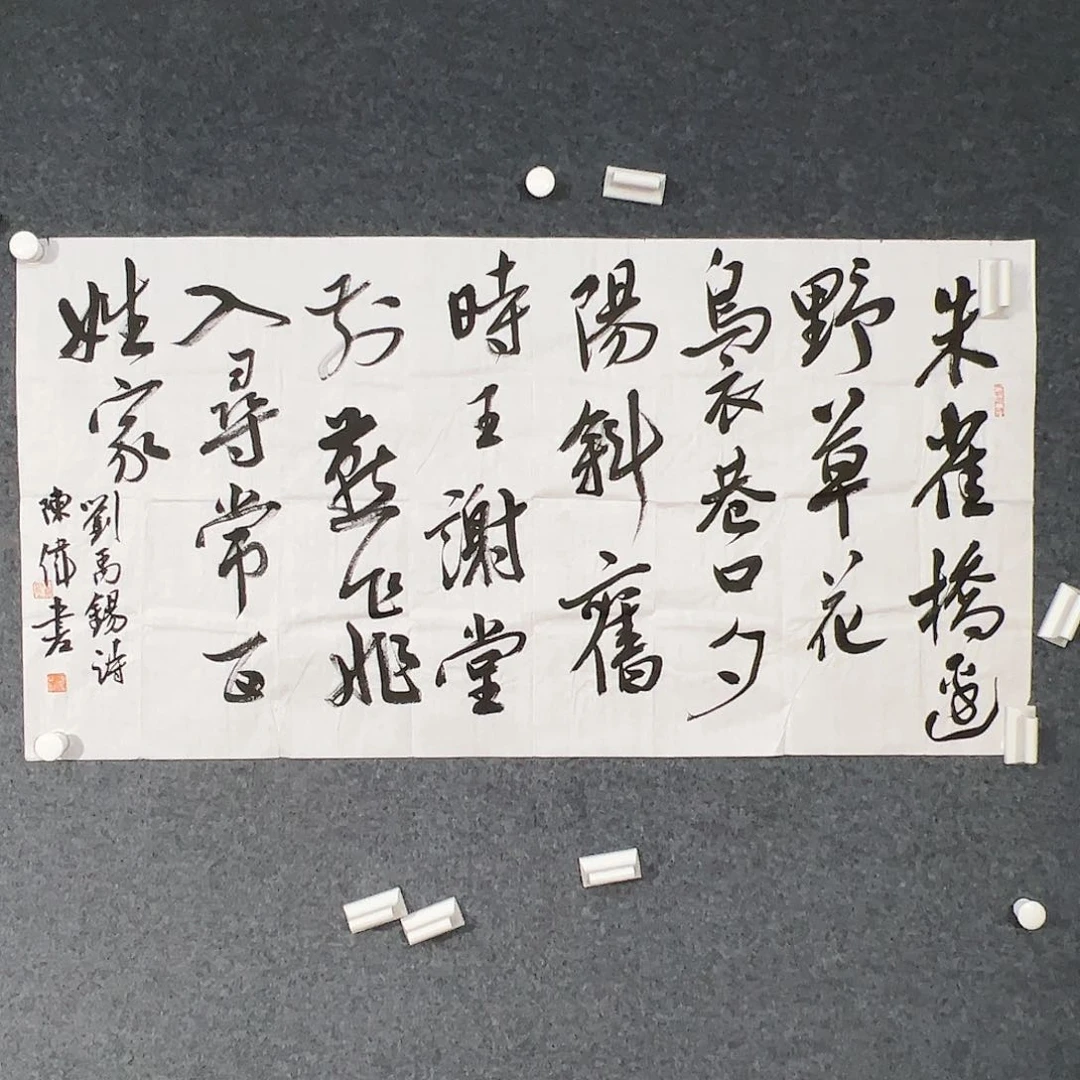 朱雀橋邊
野草花
烏衣巷口夕
陽斜舊
時王謝堂
前燕飛
入尋常百
姓家
劉禹錫詩
陳偉書